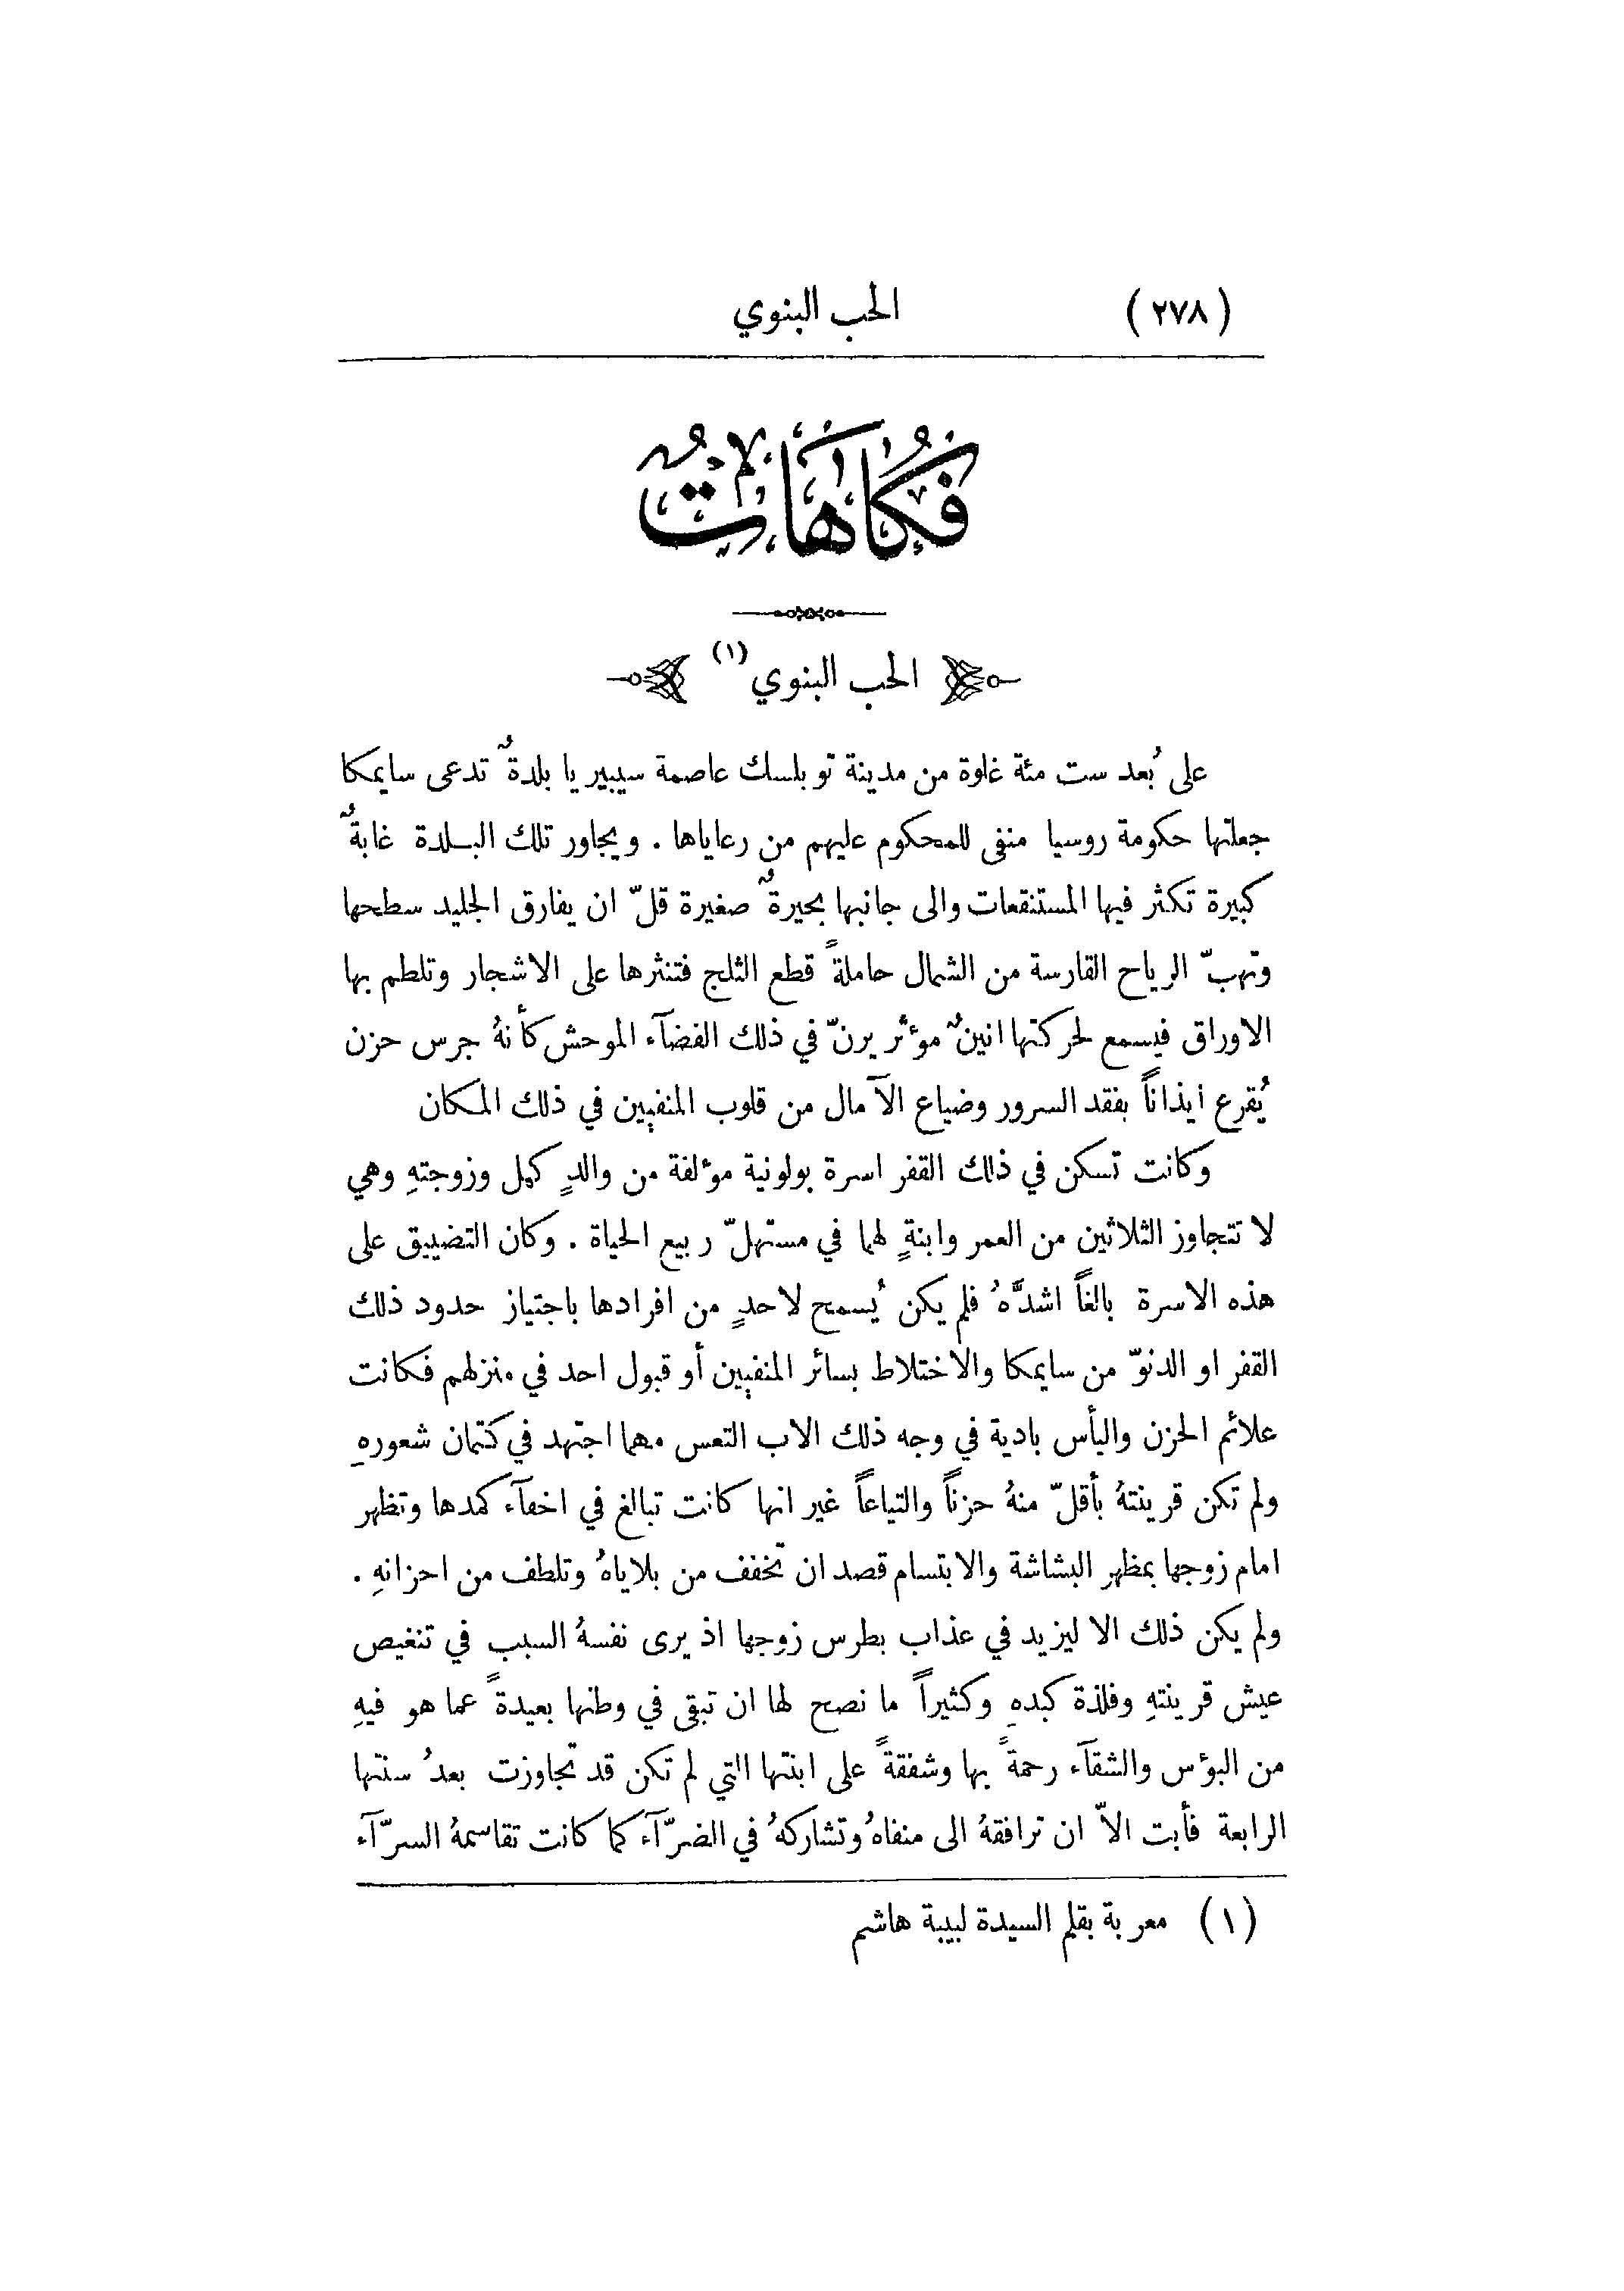 ( ٢٧٨ ) الحب البنوي
فُكَاهَاتٌ
الحب البنوي (١)
على بُعد ست مئة غلوة من مدينة توبلسك عاصمة سيبيريا بلدةٌ تدعى سايمكا
جعلتها حكومة روسيا منفى للمحكوم عليهم من رعاياها . ويجاور تلك البلدة غابةٌ
كبيرة تكثر فيها المستنقعات والى جانبها بحيرةٌ صغيرة قلّ ان يفارق الجليد سطحها
وتهبّ الرياح القارسة من الشمال حاملةً قطع الثلج فتنثرها على الاشجار وتلطم بها
الاوراق فيسمع لحركتها انينٌ مؤثر يرنّ في ذلك الفضآء الموحش كأنهُ جرس حزن
يُقرع ايذاناً بفقد السرور وضياع الآمال من قلوب المنفيين في ذلك المكان
وكانت تسكن في ذلك القفر اسرة بولونية مؤلفة من والدٍ كهل وزوجتهِ وهي
لا تتجاوز الثلاثين من العمر وابنةٍ لهما في مستهلّ ربيع الحياة . وكان التضييق على
هذه الاسرة بالغاً اشدَّهُ فلم يكن يُسمح لاحدٍ من افرادها باجتياز حدود ذلك
القفر او الدنوّ من سايمكا والاختلاط بسائر المنفيين أو قبول احد في منزلهم فكانت
علائم الحزن واليأس بادية في وجه ذلك الاب التعس مهما اجتهد في كتمان شعورهِ
ولم تكن قرينتهُ بأقلّ منهُ حزناً والتياعاً غير انها كانت تبالغ في اخفآء كمدها وتظهر
امام زوجها بمظهر البشاشة والابتسام قصد ان تخفف من بلاياهُ وتلطف من احزانهِ .
ولم يكن ذلك الا ليزيد في عذاب بطرس زوجها اذ يرى نفسهُ السبب في تنغيص
عيش قرينتهِ وفلذة كبدهِ وكثيراً ما نصح لها ان تبقى في وطنها بعيدةً عما هو فيهِ
من البؤس والشقآء رحمةً بها وشفقةً على ابنتها التي لم تكن قد تجاوزت بعدُ سنتها
الرابعة فأبت الاّ ان ترافقهُ الى منفاهُ وتشاركهُ في الضرّآء كما كانت تقاسمهُ السرّآء
(١) معربة بقلم السيدة لبيبة هاشم